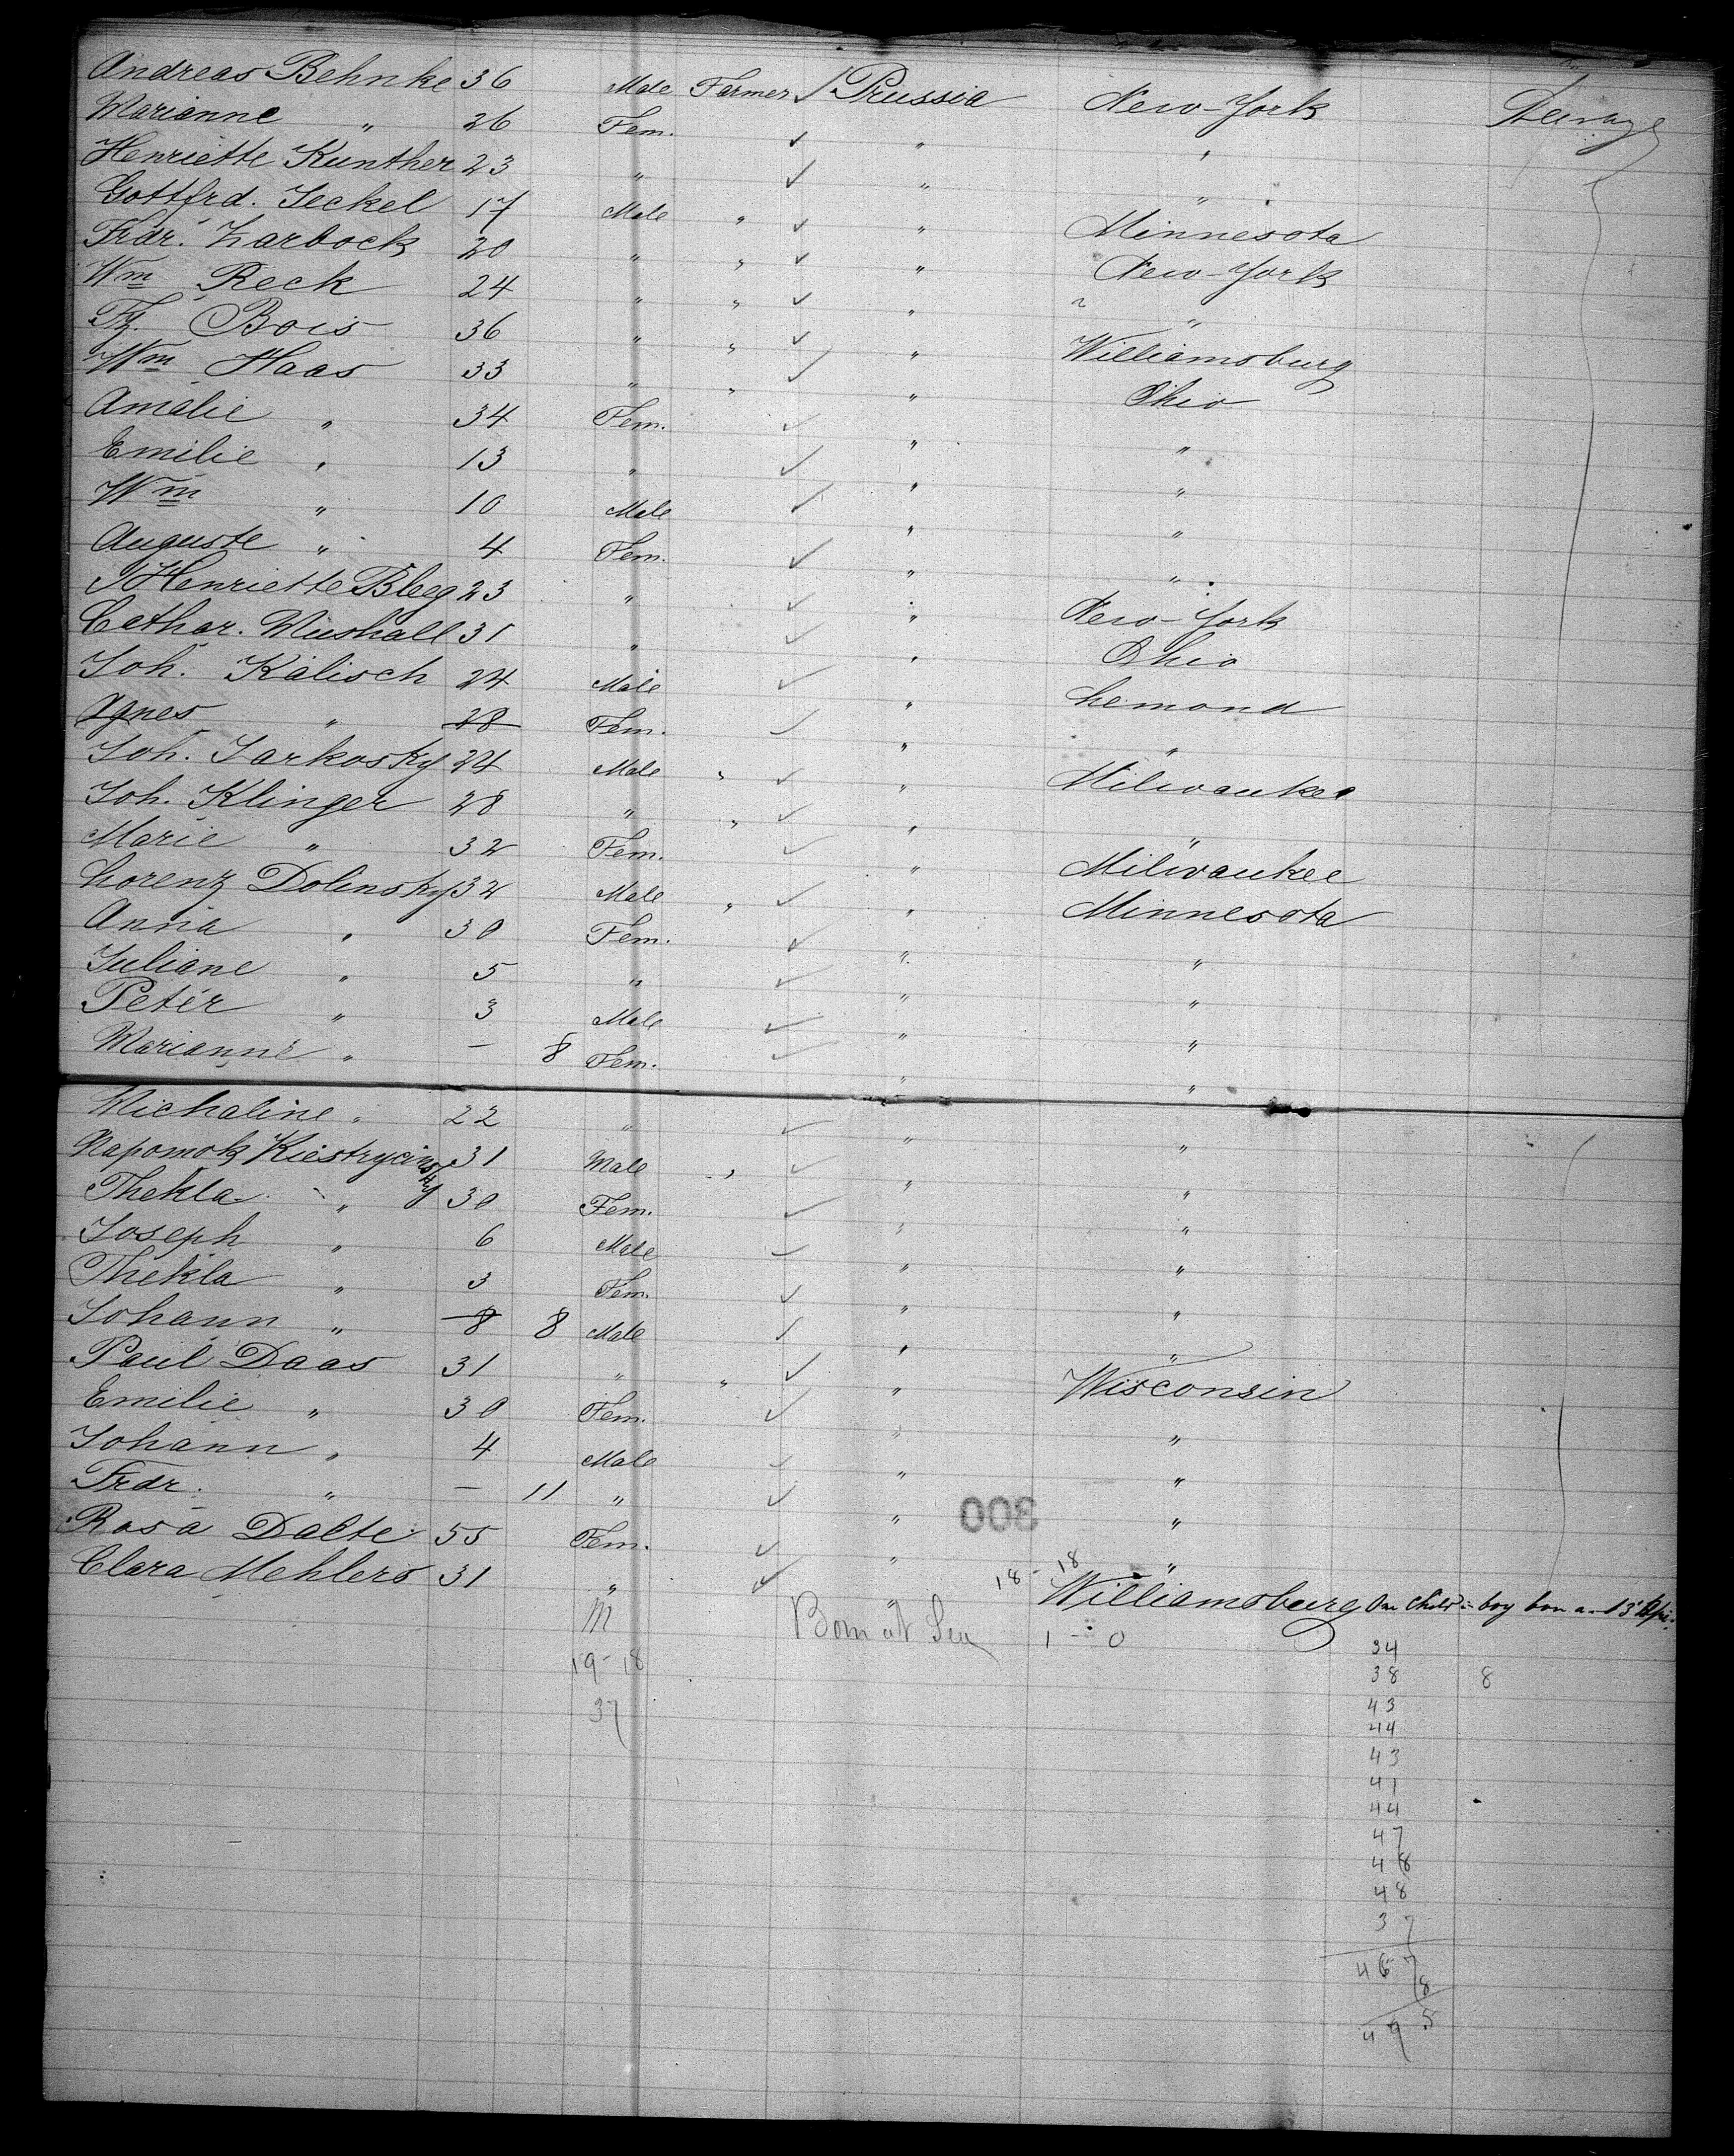 Andreas Behnke 36 Male Farmer ✓ Prussia New-York Steerage
Marianne " 26 Fem. ✓ " "
Henriette Kunther 23 " ✓ " "
Gottfrd. Jeckel 17 Male " ✓ " Minnesota
Frdr. Zarbock 20 " " ✓ " New-York
Wm Reck 24 " " ✓ " "
Fz. Bois 36 " " ✓ " Williamsburg
Wm Haas 33 " " ✓ " Ohio
Amalie " 34 Fem. ✓ " "
Emilie " 13 " ✓ " "
Wm " 10 Male ✓ " "
Auguste " 4 Fem. ✓ " "
Henriette Bleeg 23 " ✓ " New-York
Cathar. Mushall 31 " ✓ " Ohio
Joh. Kalisch 24 Male ✓ " Lemond
Agnes " 28 Fem. ✓ " "
Joh. Jarkosky 24 Male " ✓ " Milwaukee
Joh. Klinger 28 " " ✓ " "
Marie " 32 Fem. ✓ " Milwaukee
Lorenz Dolinsky 32 Male " ✓ " Minnesota
Anna " 30 Fem. ✓ " "
Juliane " 5 " ✓ " "
Peter " 3 Male ✓ " "
Marianne " — 8 Fem. ✓ " "
Michaline " 22 " ✓ " "
Napomok Kiestrycinsky 31 Male " ✓ " "
Thekla " 30 Fem. ✓ " "
Joseph " 6 Male ✓ " "
Thekla " 3 Fem. ✓ " "
Johann " 8 8 Male ✓ " "
Paul Daas 31 " " ✓ " Wisconsin
Emilie " 30 Fem. ✓ " "
Johann " 4 Male ✓ " "
Frdr. " — 11 " ✓ " "
300
Rosa Dalte 55 Fem. ✓ " "
Clara Mehlers 31 " ✓ " Williamsburg One Child = boy
18-18
M Born at Sea 1 - 0
19-18
37
34
38 8
43
44
43
41
44
47
48
48
37
467
8
495